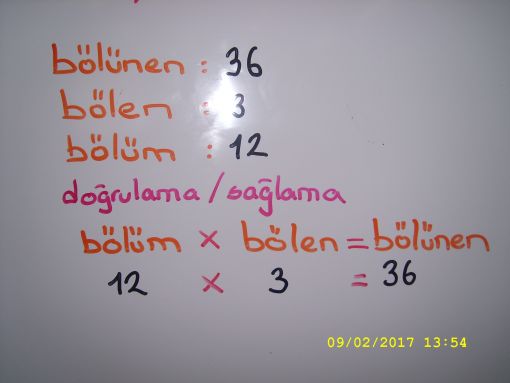 bölünen : 36
bölen : 3
bölüm : 12
doğrulama / sağlama
bölüm × bölen = bölünen
12 × 3 = 36
09/02/2017 13:54